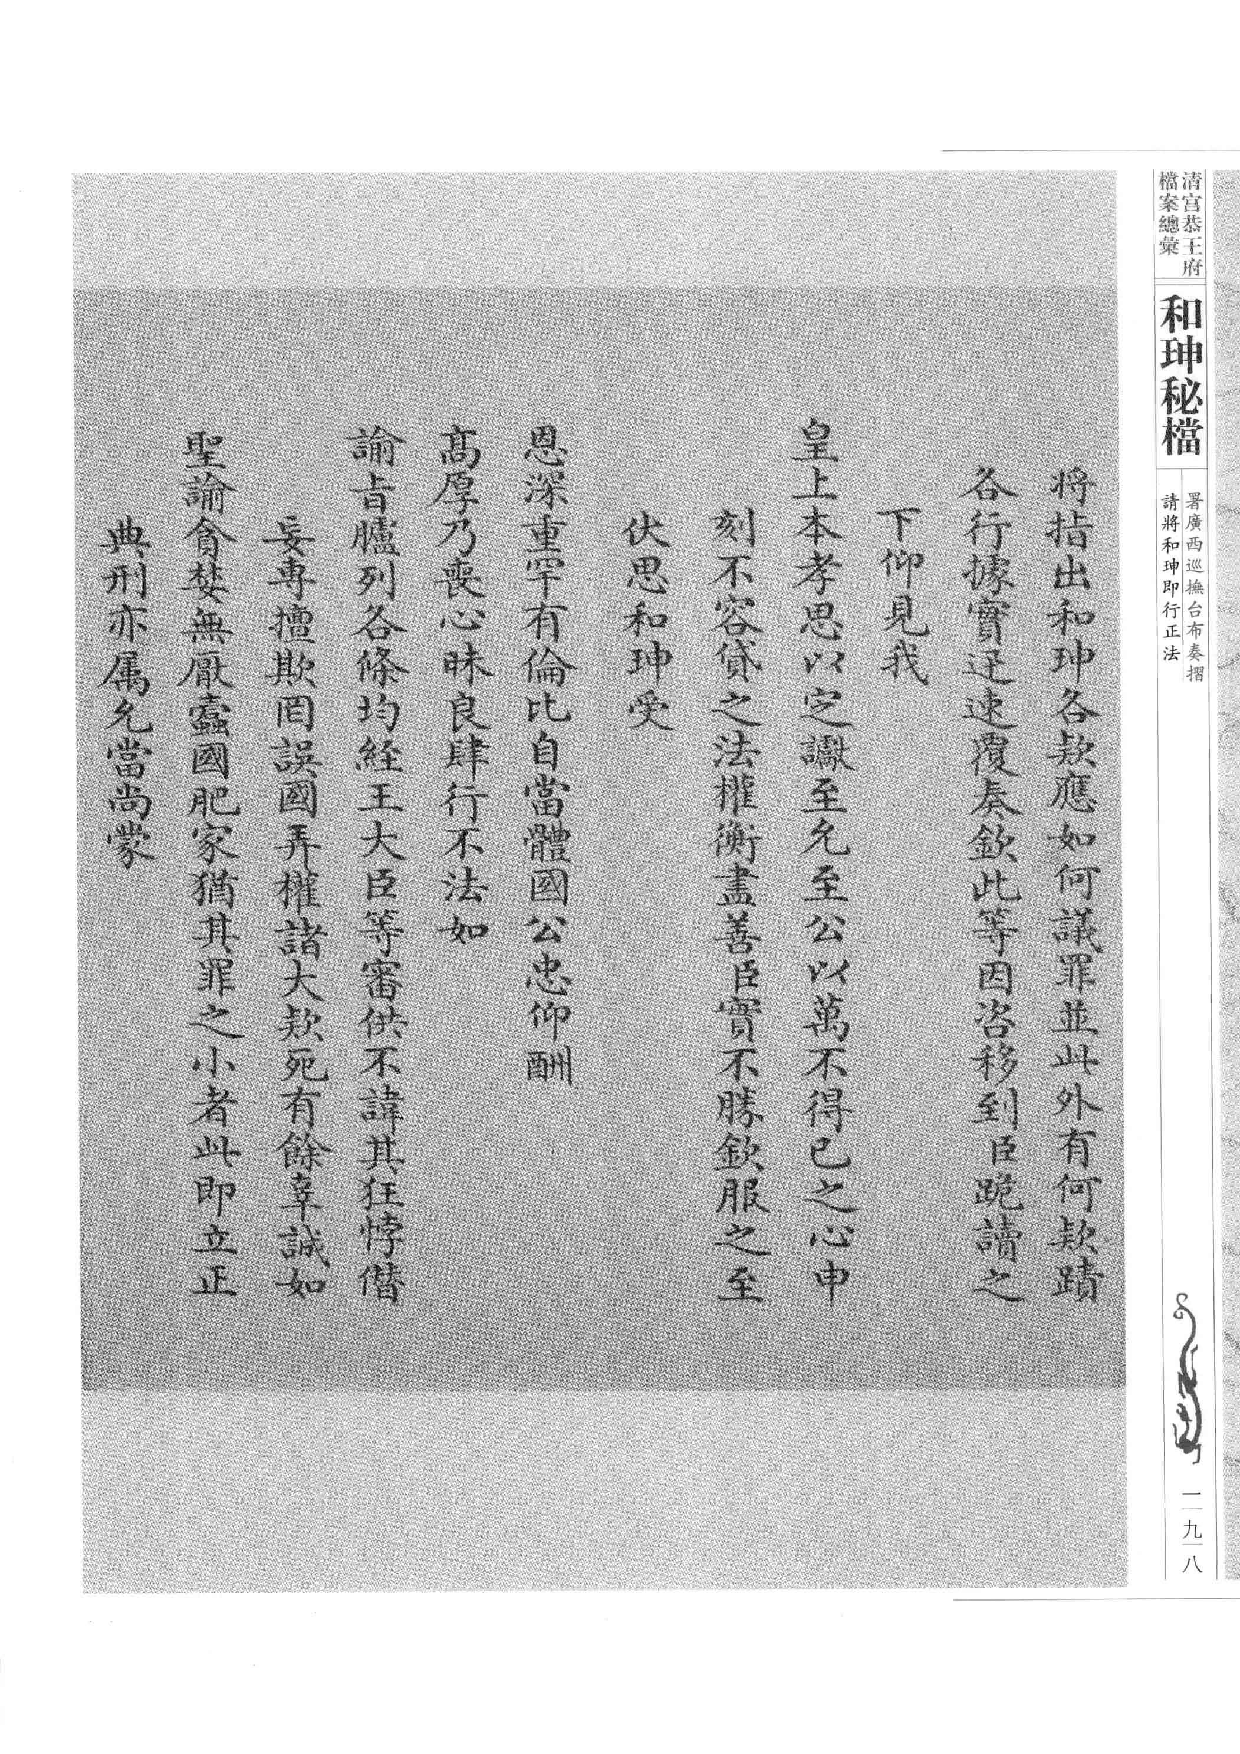 清宫恭王府
檔案總彙
和珅秘檔
署廣西巡撫台布奏摺
請將和珅即行正法
二九八
将指出和珅各款應如何議罪並此外有何款蹟
各行據實迅速覆奏欽此等因咨移到臣跪讀之
下仰見我
皇上本孝思以定讞至允至公以萬不得已之心申
刻不容貸之法權衡盡善臣實不勝欽服之至
伏思和珅受
恩深重罕有倫比自當體國公忠仰酬
髙厚乃喪心昧良肆行不法如
諭㫖臚列各條均経王大臣等審供不諱其狂悖僣
妄専擅欺罔誤國弄權諸大款死有餘辜誠如
聖諭貪婪無厭蠧國肥家猶其罪之小者此即立正
典刑亦属允當尚蒙